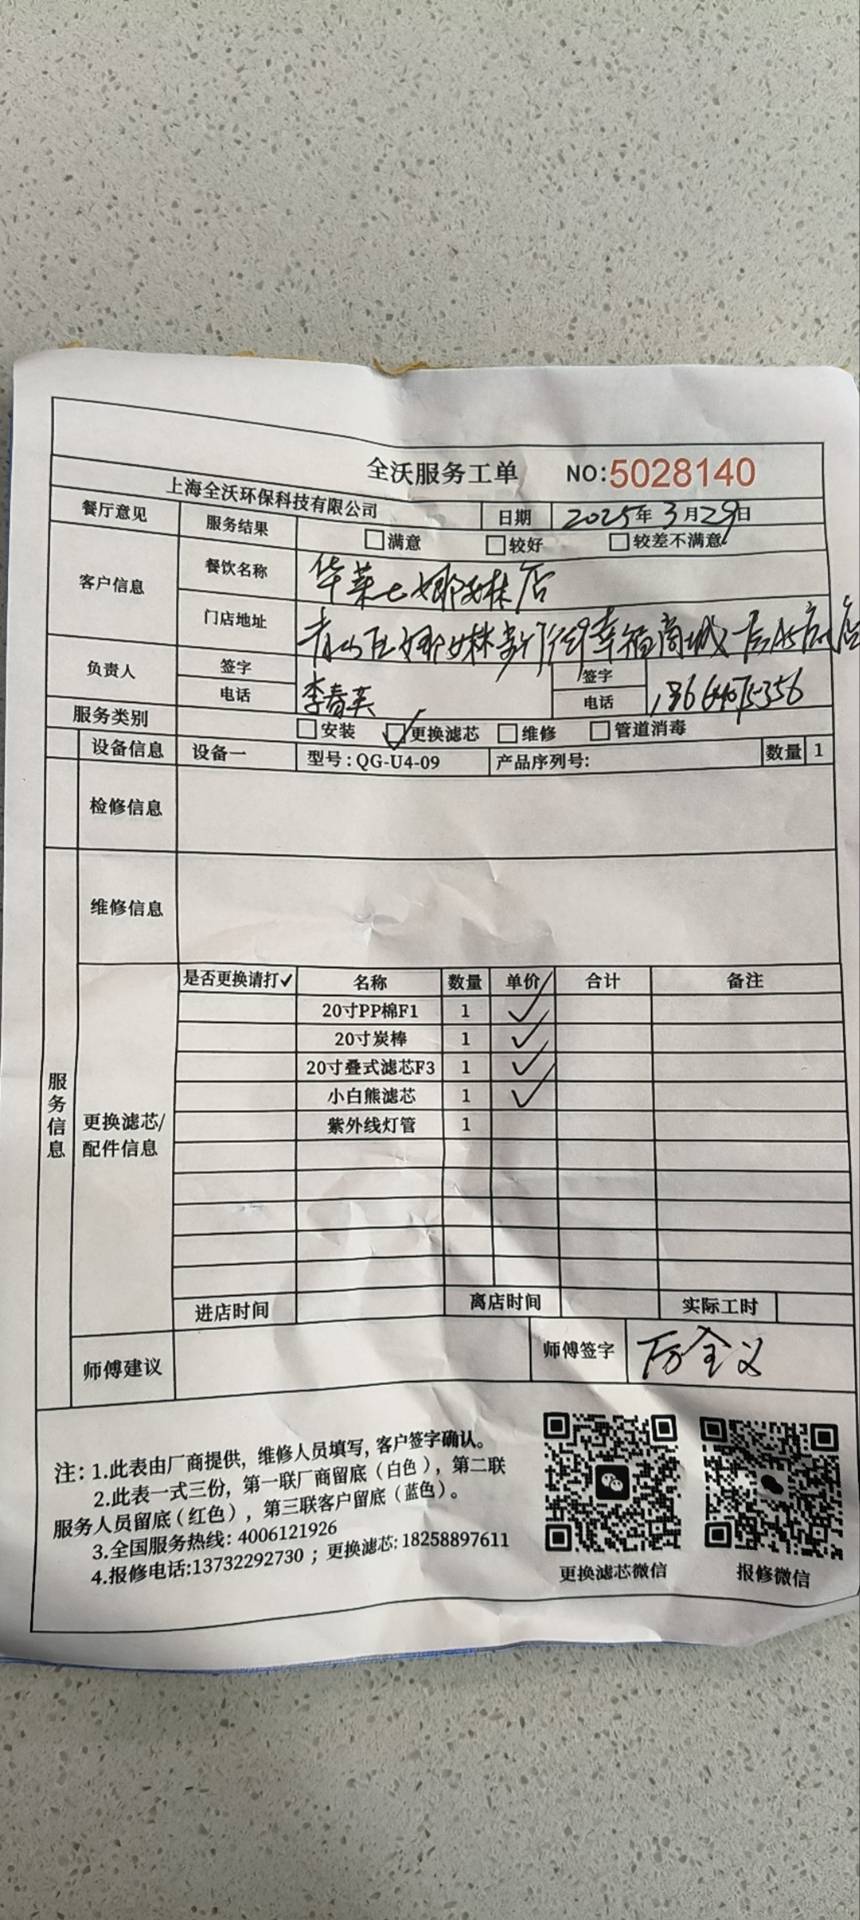 全沃服务工单 NO:5028140
上海全沃环保科技有限公司 日期 2025年3月29日
餐厅意见 服务结果 满意 较好 较差不满意
客户信息 餐饮名称 华莱士娜姑林店
门店地址 幸福商城
负责人 签字 李春英 签字
电话 电话
服务类别 安装 ✓更换滤芯 维修 管道消毒
设备信息 设备一 型号:QG-U4-09 产品序列号: 数量 1
检修信息
维修信息
服务信息
更换滤芯/配件信息
是否更换请打✓ 名称 数量 单价 合计 备注
20寸PP棉F1 1 ✓
20寸炭棒 1 ✓
20寸叠式滤芯F3 1 ✓
小白熊滤芯 1 ✓
紫外线灯管 1
进店时间 离店时间 实际工时
师傅建议 师傅签字
注:1.此表由厂商提供，维修人员填写,客户签字确认。
2.此表一式三份，第一联厂商留底（白色），第二联
服务人员留底(红色)，第三联客户留底（蓝色）。
3.全国服务热线: 4006121926
4.报修电话:13732292730 ；更换滤芯: 18258897611
更换滤芯微信 报修微信